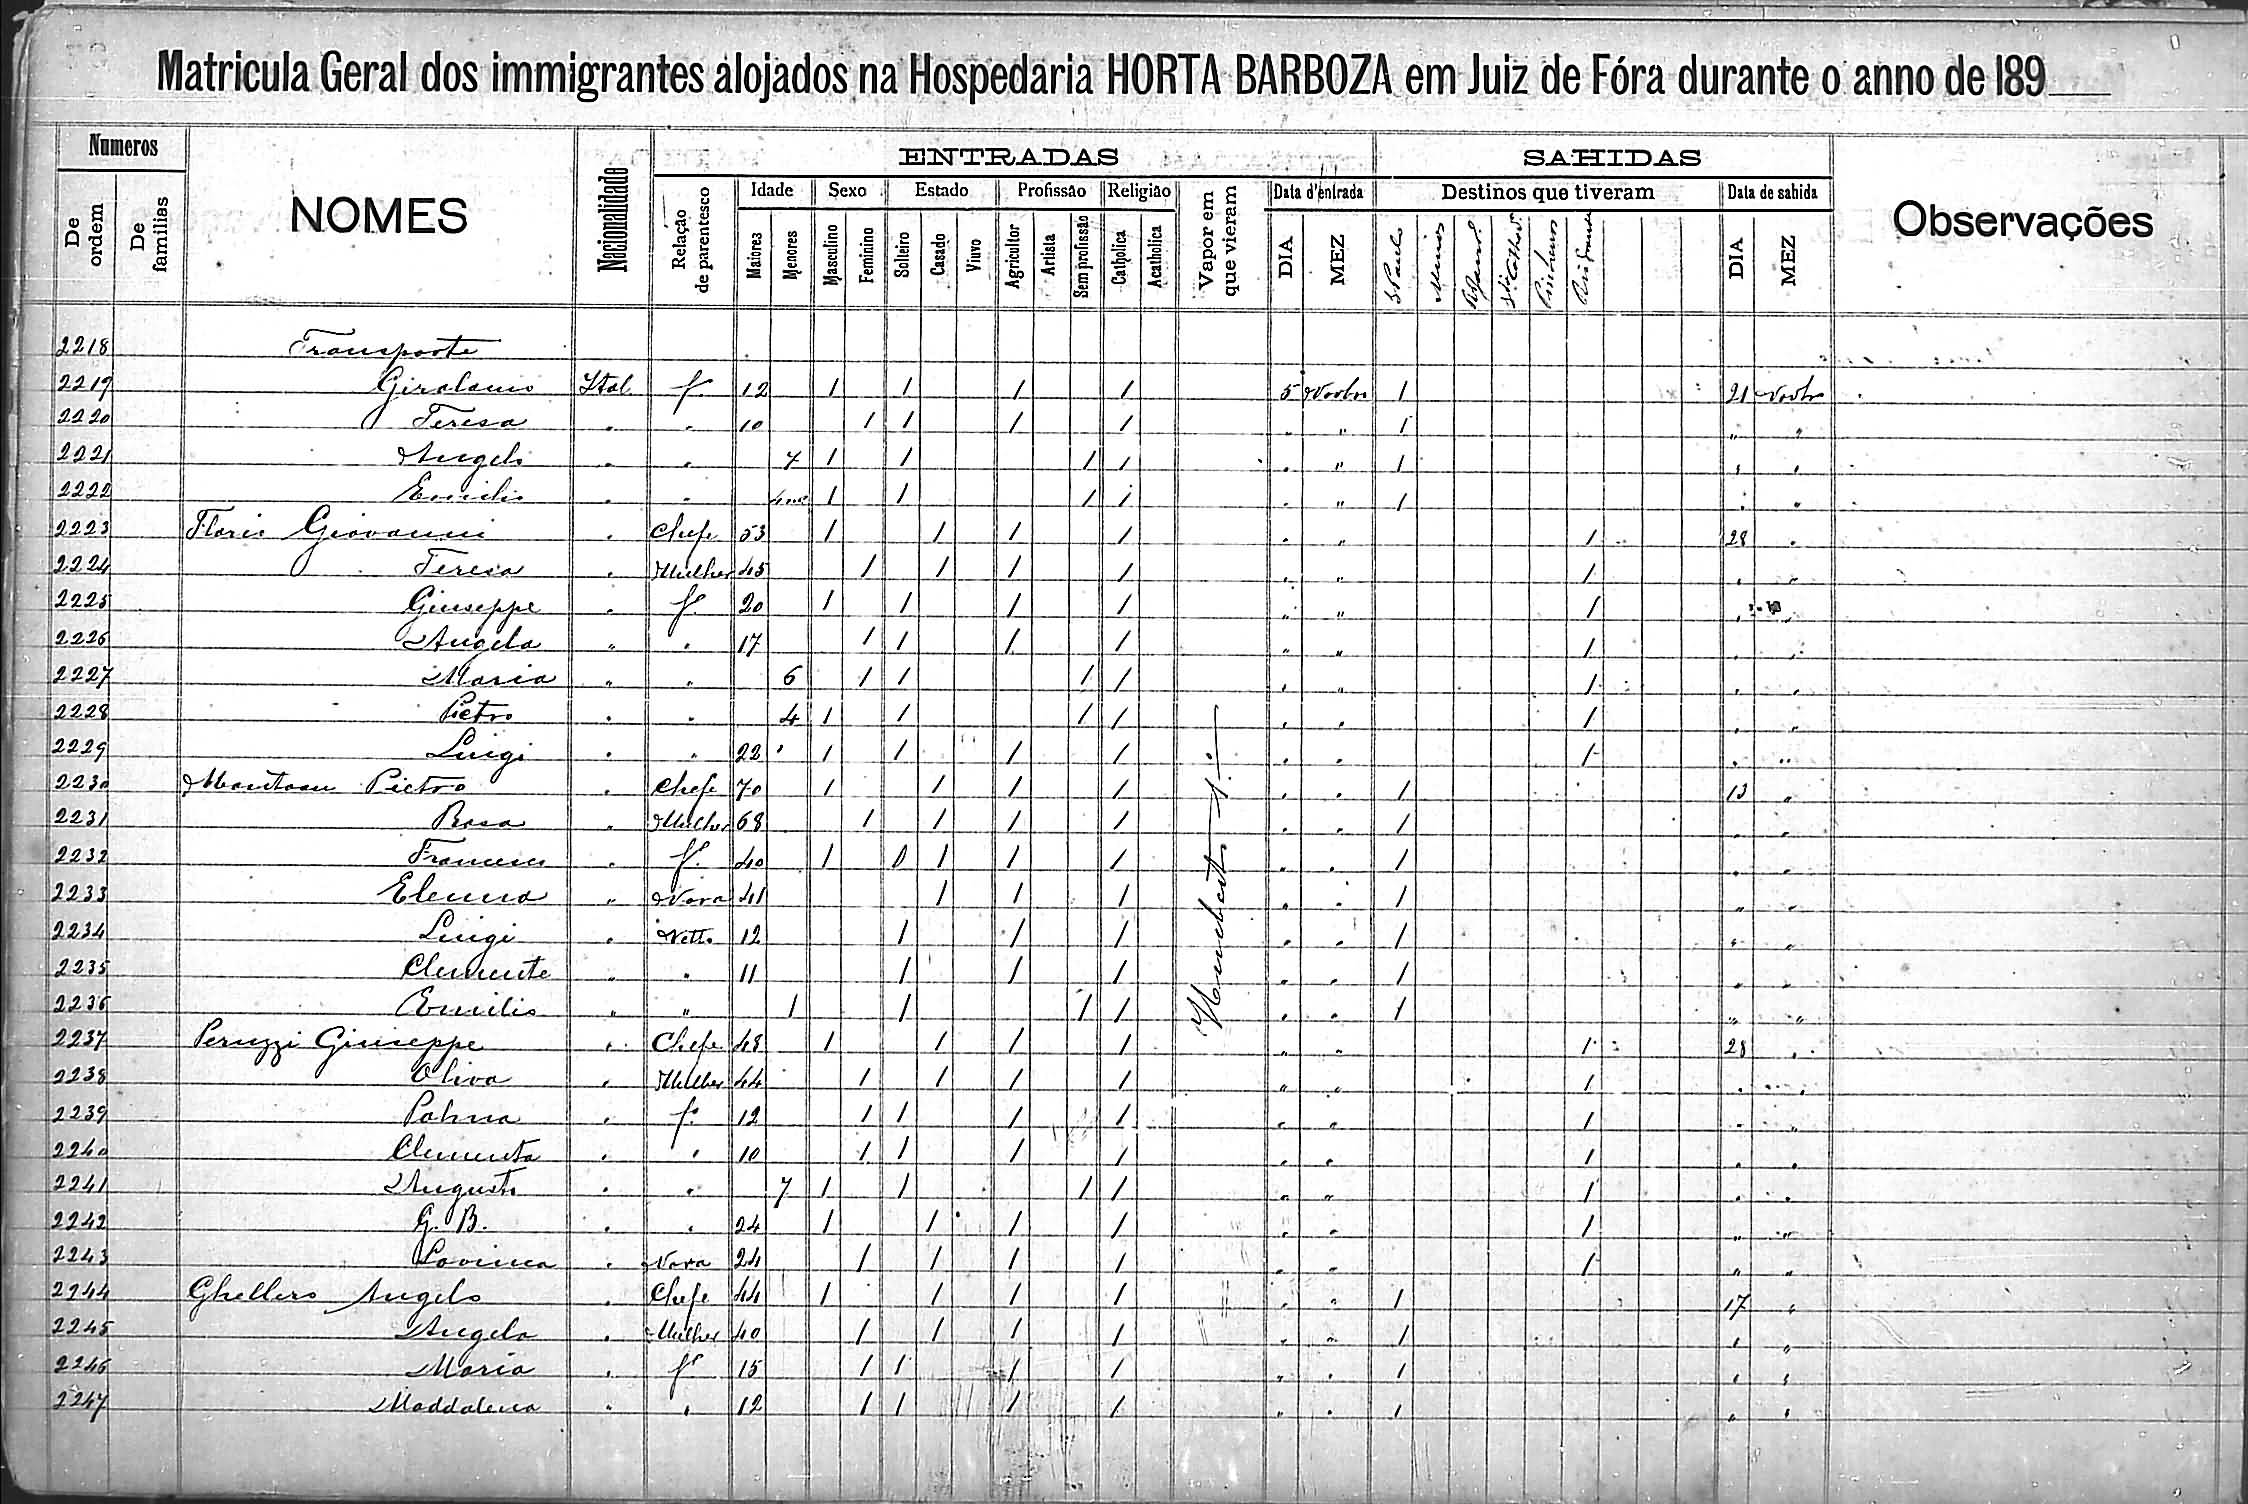 Matricula Geral dos immigrantes alojados na Hospedaria HORTA BARBOZA em Juiz de Fóra durante o anno de 189
Numeros NOMES Nacionalidade ENTRADAS SAHIDAS Observações
De ordem De familias Relação de parentesco Idade Sexo Estado Profissão Religião Vapor em que vieram Data d'entrada Destinos que tiveram Data de sahida
Maiores Menores Masculino Feminino Solteiro Casado Viuvo Agricultor Artista Sem profissão Catholica Acatholica DIA MEZ S Paulo Minas DIA MEZ
2218 Transporte
2219 Girolamo Ital f. 12 1 1 1 1 5 Novbro 1 21 Novbro
2220 Teresa " " 10 1 1 1 1 " " 1 " "
2221 Angelo " " 7 1 1 1 1 " " 1 " "
2222 Emilio " " 1 1 1 1 " " 1 " "
2223 Giovanni " Chefe 53 1 1 1 1 " " 1 28 "
2224 Teresa " Mulher 45 1 1 1 1 " " 1 " "
2225 Giuseppe " f. 20 1 1 1 1 " " 1 " "
2226 Angela " " 17 1 1 1 1 " " 1 " "
2227 Maria " " 6 1 1 1 1 " " 1 " "
2228 Pietro " " 4 1 1 1 1 " " 1 " "
2229 Luigi " " 22 1 1 1 1 " " 1 " "
2230 Mantoan Pietro " Chefe 70 1 1 1 1 " " 1 13 "
2231 Rosa " Mulher 68 1 1 1 1 " " 1 " "
2232 Francesco " f. 40 1 1 1 1 " " 1 " "
2233 Elenna " Nora 41 1 1 1 " " 1 " "
2234 Luigi " Netto 12 1 1 1 " " 1 " "
2235 Clemente " " 11 1 1 1 " " 1 " "
2236 Emilio " " 1 1 1 1 " " 1 " "
2237 Peruzzi Giuseppe " Chefe 48 1 1 1 1 " " 1 28 "
2238 Oliva " Mulher 44 1 1 1 1 " " 1 " "
2239 Palma " f. 12 1 1 1 1 " " 1 " "
2240 Clementa " " 10 1 1 1 1 " " 1 " "
2241 Augusto " " 7 1 1 1 1 " " 1 " "
2242 G. B. " " 24 1 1 1 1 " " 1 " "
2243 " Nora 24 1 1 1 1 " " 1 " "
2244 Ghellero Angelo " Chefe 44 1 1 1 1 " " 1 17 "
2245 Angela " Mulher 40 1 1 1 1 " " 1 " "
2246 Maria " f. 15 1 1 1 1 " " 1 " "
2247 Maddalena " " 12 1 1 1 1 " " 1 " "